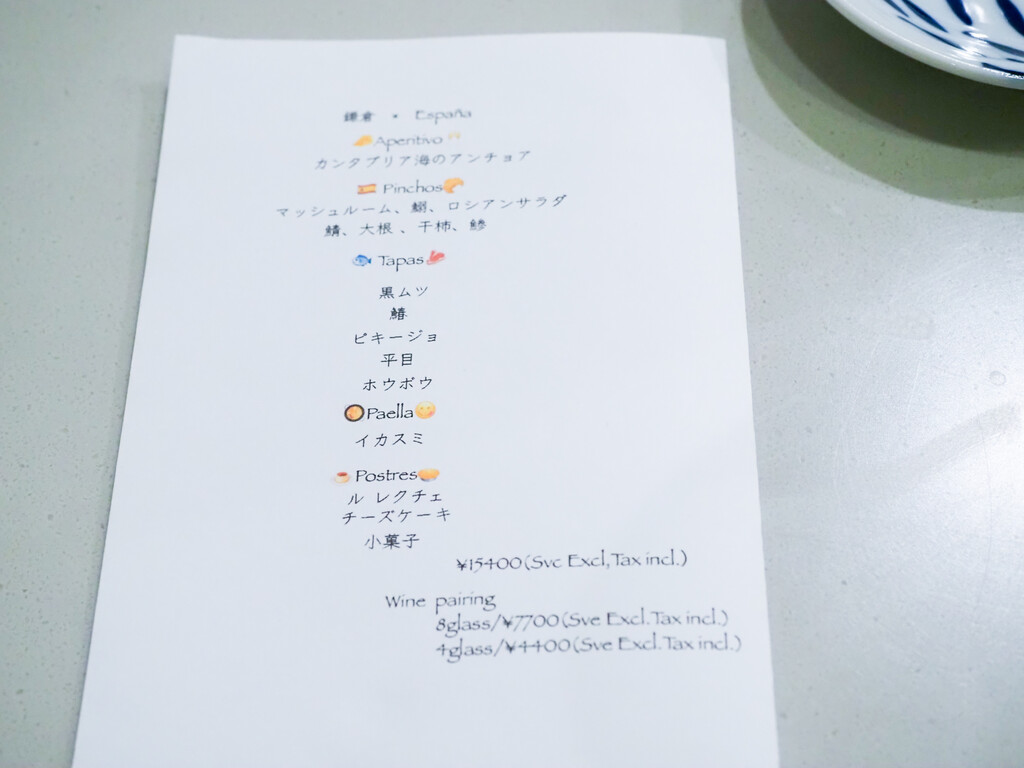 鎌倉 × España
Aperitivo
カンタブリア海のアンチョア
Pinchos
マッシュルーム、鰯、ロシアンサラダ
鯖、大根、干柿、鯵
Tapas
黒ムツ
鰆
ピキージョ
平目
ホウボウ
Paella
イカスミ
Postres
ル レクチェ
チーズケーキ
小菓子
¥15400(Svc Excl,Tax incl.)
Wine pairing
8glass/¥7700(Sve Excl.Tax incl.)
4glass/¥4400(Sve Excl.Tax incl.)